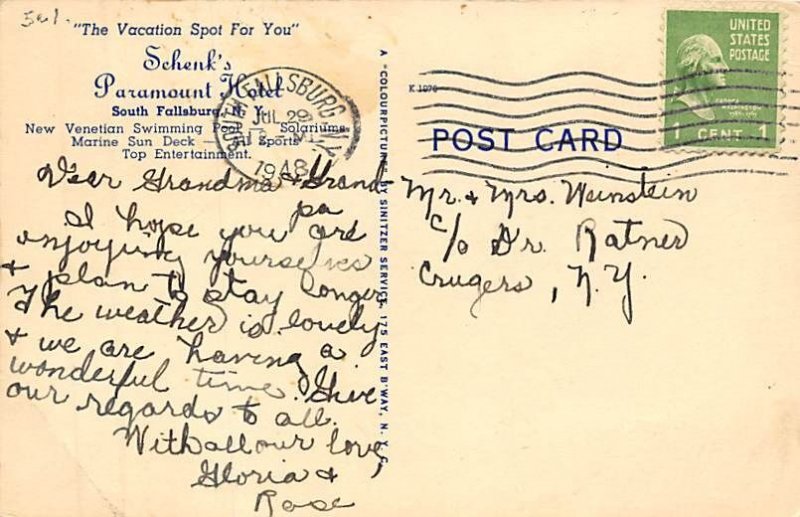 5c1
"The Vacation Spot For You"
Schenk's
Paramount Hotel
South Fallsburg, N. Y.
New Venetian Swimming Pool — Solariums
Marine Sun Deck — All Sports
Top Entertainment.
SOUTH FALLSBURG, N.Y.
JUL 29
1948
Dear Grandma & Grand-
pa
I hope you are
enjoying yourselves
& plan to stay longer
The weather is lovely
& we are having a
wonderful time. Give
our regards to all.
With all our love,
Gloria &
Rose
A "COLOURPICTURE" BY SINITZER SERVICE, 175 EAST B'WAY, N. Y. C.
K 1076
POST CARD
UNITED
STATES
POSTAGE
GEORGE
WASHINGTON
1 CENT 1
Mr. & Mrs. Weinstein
c/o Dr. Ratner
Crugers, N.Y.